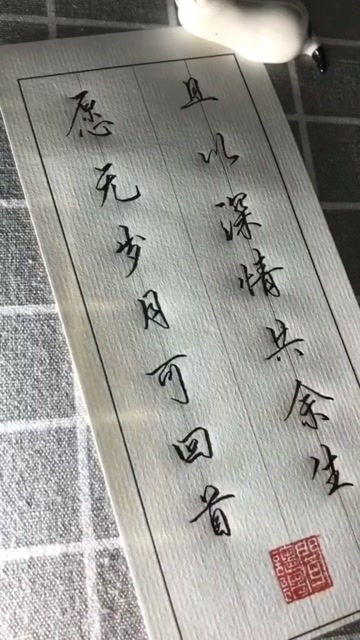 愿无岁月可回首
且以深情共余生